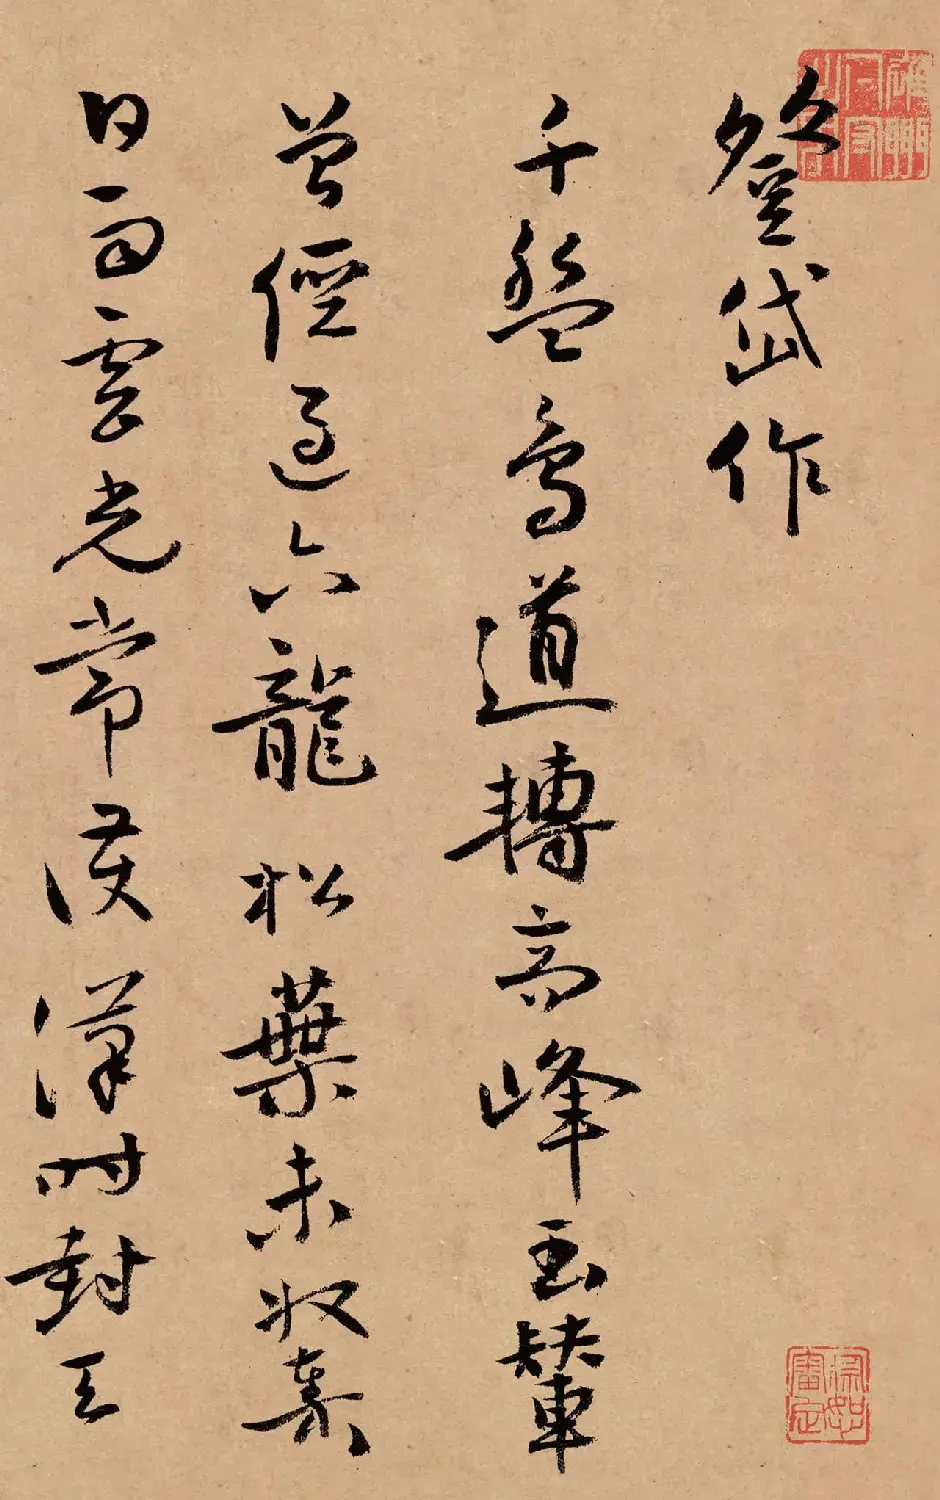 登岱作
千盤鳥道轉高峰玉輦
曾俓過六龍松葉未收秦
日雨雲光常護漢時封天